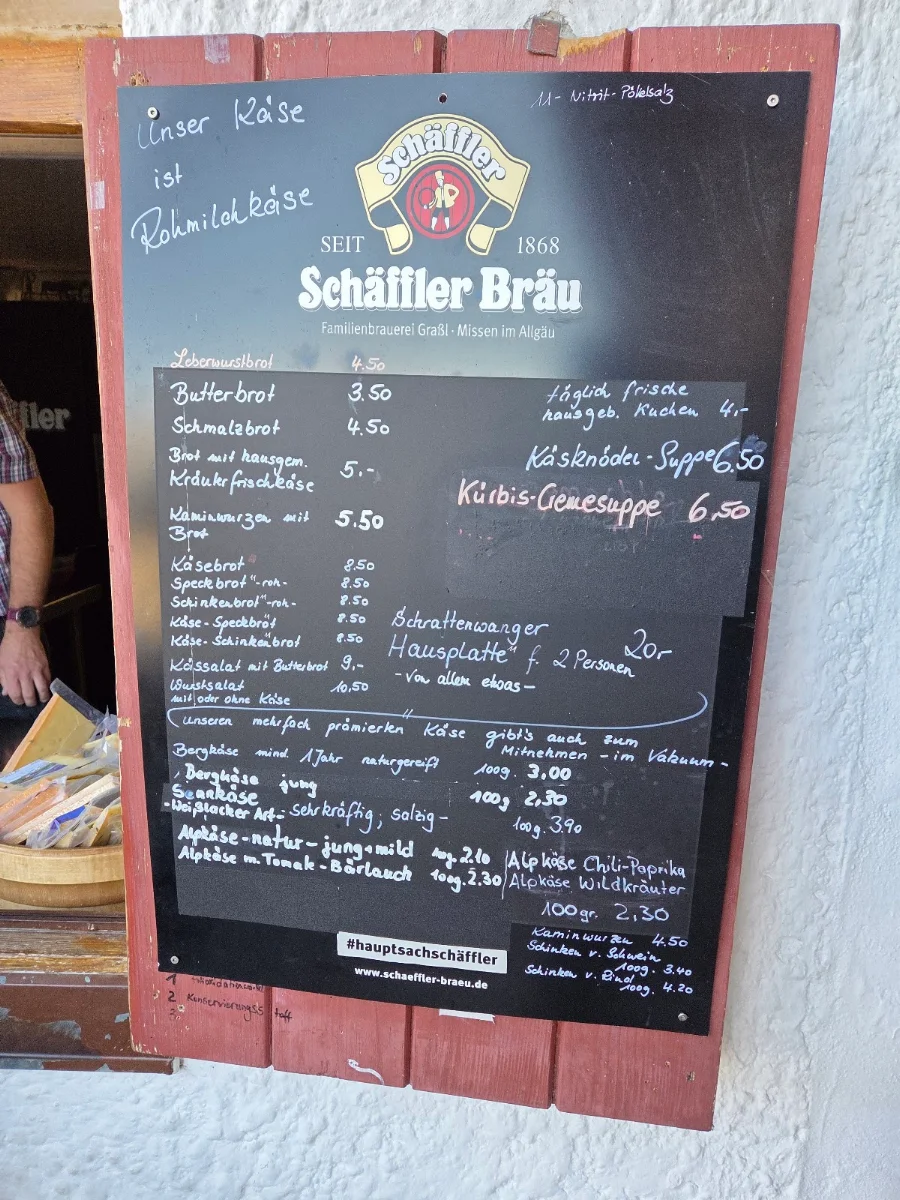 Unser Käse
ist
Rohmilchkäse
11- Nitrit-Pökelsalz
Schäffler
SEIT 1868
Schäffler Bräu
Familienbrauerei Graßl · Missen im Allgäu
ffler
Leberwurstbrot 4.50
Butterbrot 3.50
Schmalzbrot 4.50
Brot mit hausgem.
Kräuterfrischkäse 5.-
Kaminwurzen mit
Brot 5.50
Käsebrot 8.50
Speckbrot "-roh- 8.50
Schinkenbrot "-roh- 8.50
Käse-Speckbrot 8.50
Käse-Schinkenbrot 8.50
Kässalat mit Butterbrot 9,-
Wurstsalat 10,50
mit oder ohne Käse
täglich frische
hausgeb. Kuchen 4,-
Käsknödel-Suppe 6.50
Kürbis-Cremesuppe 6,50
Schrattenwanger
Hausplatte" f. 2 Personen 20,-
-von allem etwas-
unseren mehrfach prämierten Käse gibt's auch zum
Mitnehmen - im Vakuum -
Bergkäse mind. 1 Jahr naturgereift 100g. 3,00
Bergkäse jung 100g 2,30
Sennkäse
-Weißlacker Art- sehr kräftig, salzig- 100g. 3.90
Alpkäse-natur-jung+mild 100g. 2.10
Alpkäse m. Tomak-Bärlauch 100g. 2.30
Alpkäse Chili-Paprika
Alpkäse Wildkräuter
100gr. 2,30
Kaminwurzen 4.50
Schinken v. Schwein
100g. 3.40
Schinken v. Rind
100g. 4.20
#hauptsachschäffler
www.schaeffler-braeu.de
1
2 Konservierungsstoff
3